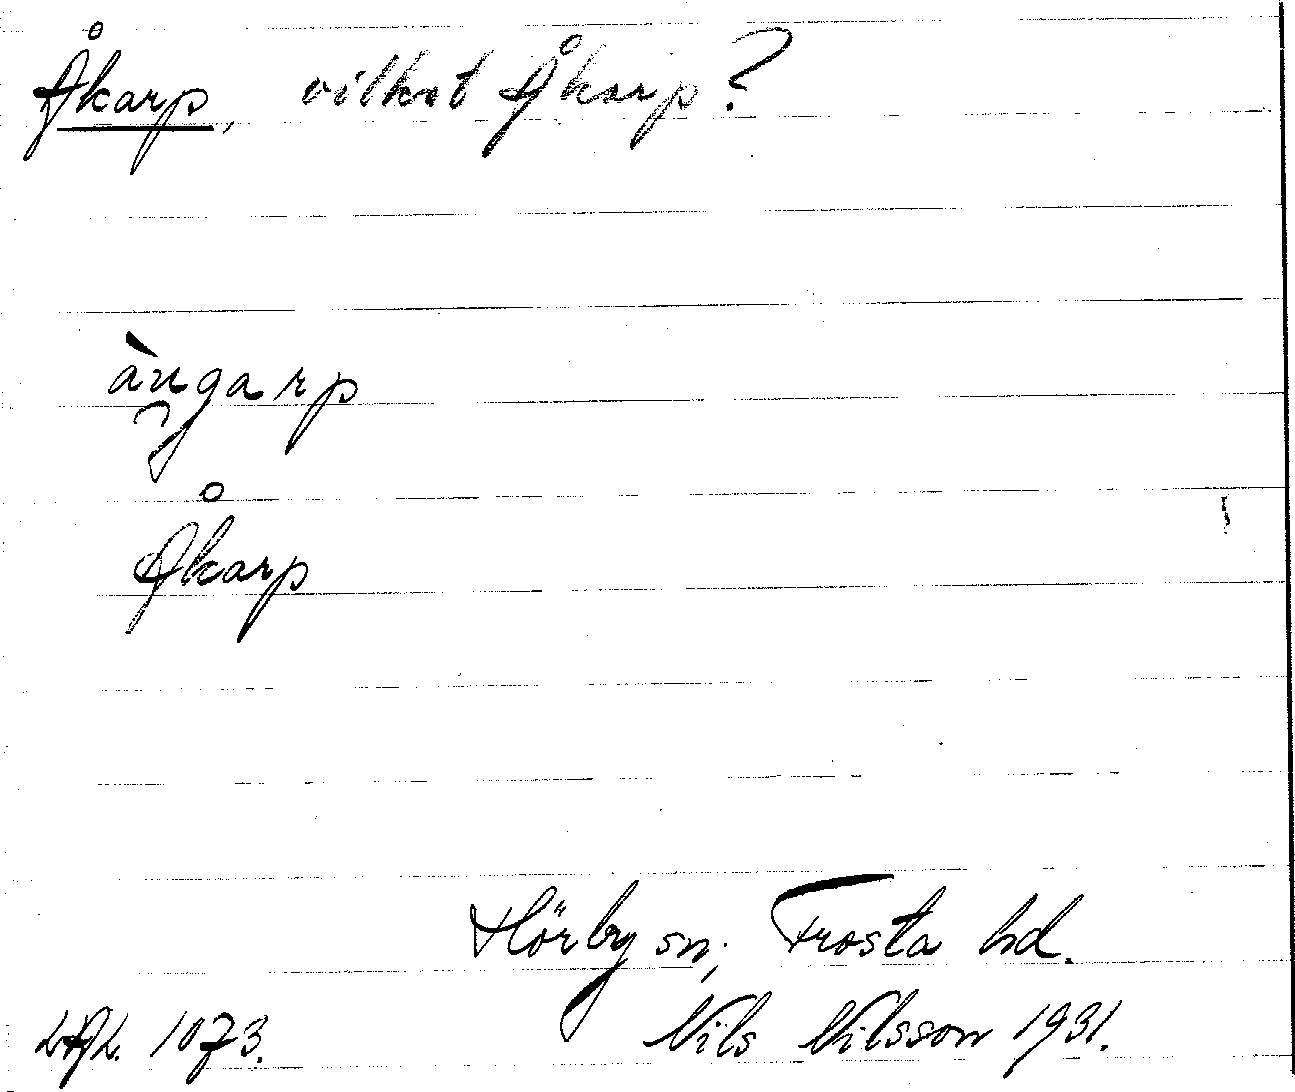 Åkarp, vilket Åkarp?
àngarp
Åkarp
Hörby sn; Frosta hd.
LAL. 1073. Nils Nilsson 1931.